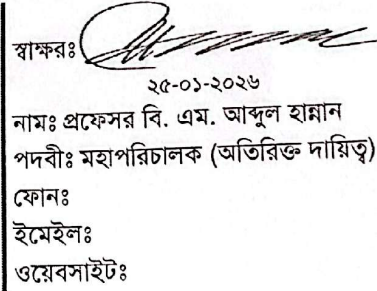 স্বাক্ষরঃ
২৫-০১-২০২৬
নামঃ প্রফেসর বি. এম. আব্দুল হান্নান
পদবীঃ মহাপরিচালক (অতিরিক্ত দায়িত্ব)
ফোনঃ
ইমেইলঃ
ওয়েবসাইটঃ